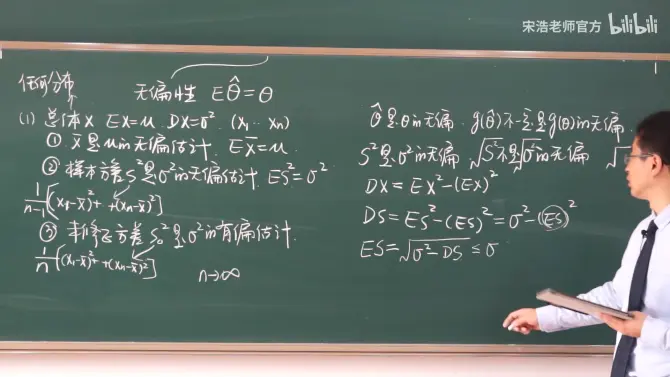 宋浩老师官方 bilibili
任何分布
无偏性 Eθ̂=θ
(1) 总体X EX=μ DX=σ². (X₁ … Xₙ)
① X̄是μ的无偏估计. EX̄=μ.
② 样本方差S²是σ²的无偏估计 ES²=σ²
1/(n-1)[(X₁-X̄)²+ +(Xₙ-X̄)²]
③ 未修正方差S₀²是σ²的有偏估计.
1/n[(X₁-X̄)²+ +(Xₙ-X̄)²]
n→∞
θ̂是θ的无偏. g(θ̂)不一定是g(θ)的无偏.
S²是σ²的无偏 √S²不是√σ²的无偏 √
DX=EX²-(EX)²
DS=ES²-(ES)²=σ²-(ES)²
ES=√(σ²-DS)≤σ